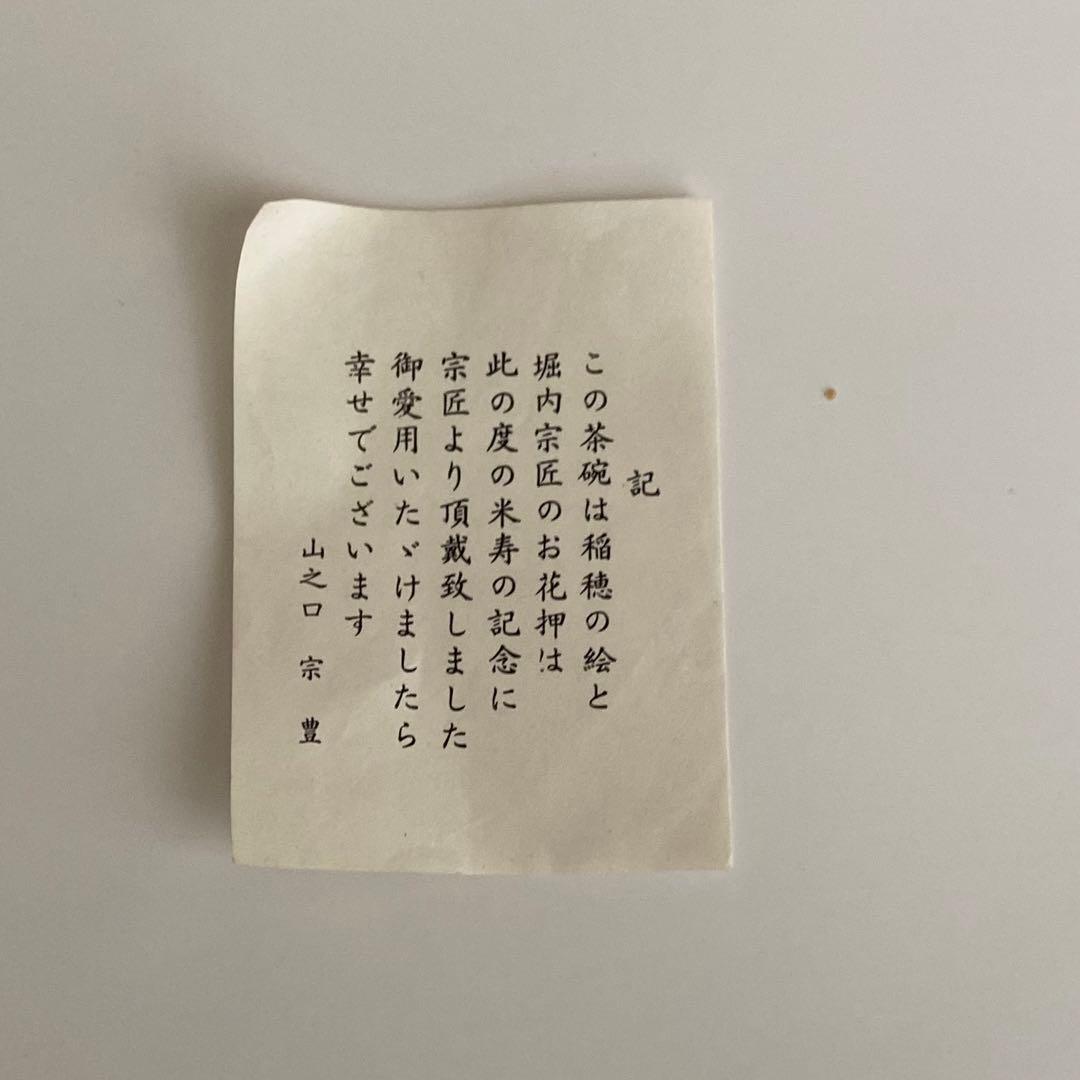 記
この茶碗は稲穂の絵と
堀内宗匠のお花押は
此の度の米寿の記念に
宗匠より頂戴致しました
御愛用いたゞけましたら
幸せでございます
山之口 宗 豊